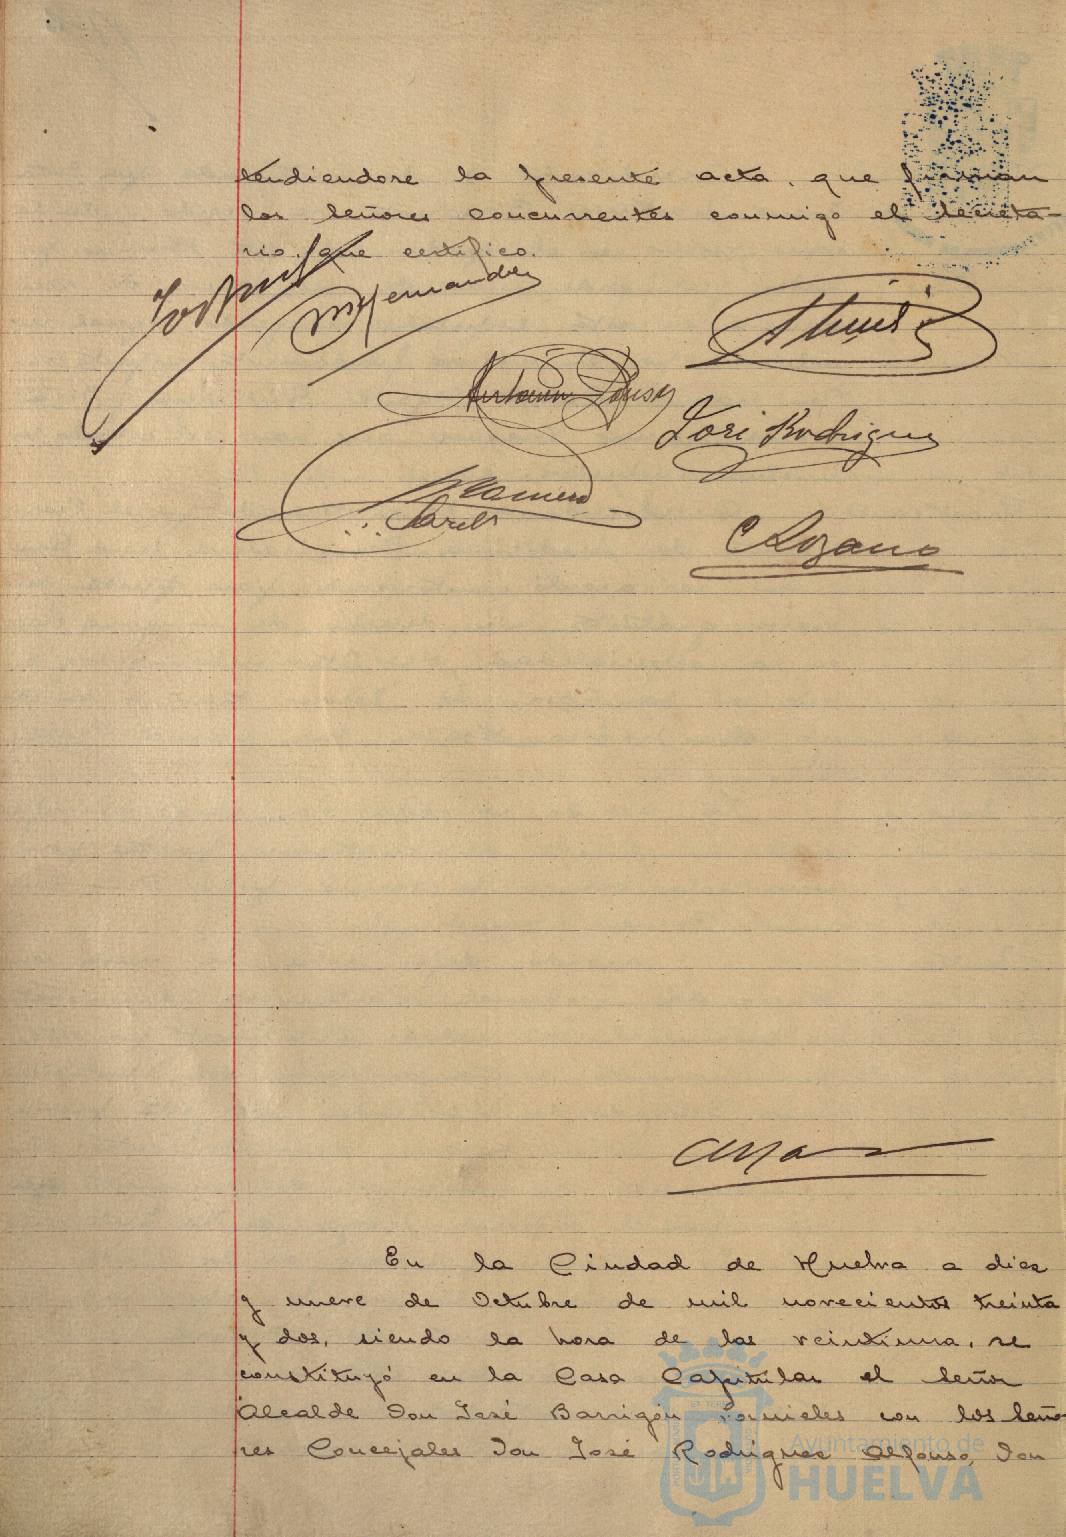 tendiendose la presente acta, que firman
los Señores concurrentes conmigo el Secreta-
rio, que certifico.
Hernandez
José Rodriguez
C Lozano
En la Ciudad de Huelva a diez
y nueve de Octubre de mil novecientos treinta
y dos, siendo la hora de las veintiuna, se
constituyó en la Casa Capitular el Señor
Alcalde Don José Barrigón Fornieles con los Seño-
res Concejales Don José Rodriguez Alfonso, Don
Ayuntamiento de
HUELVA